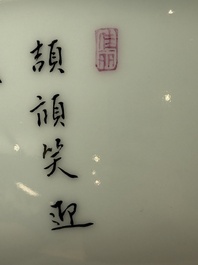 佳丽
頡頏笑迎